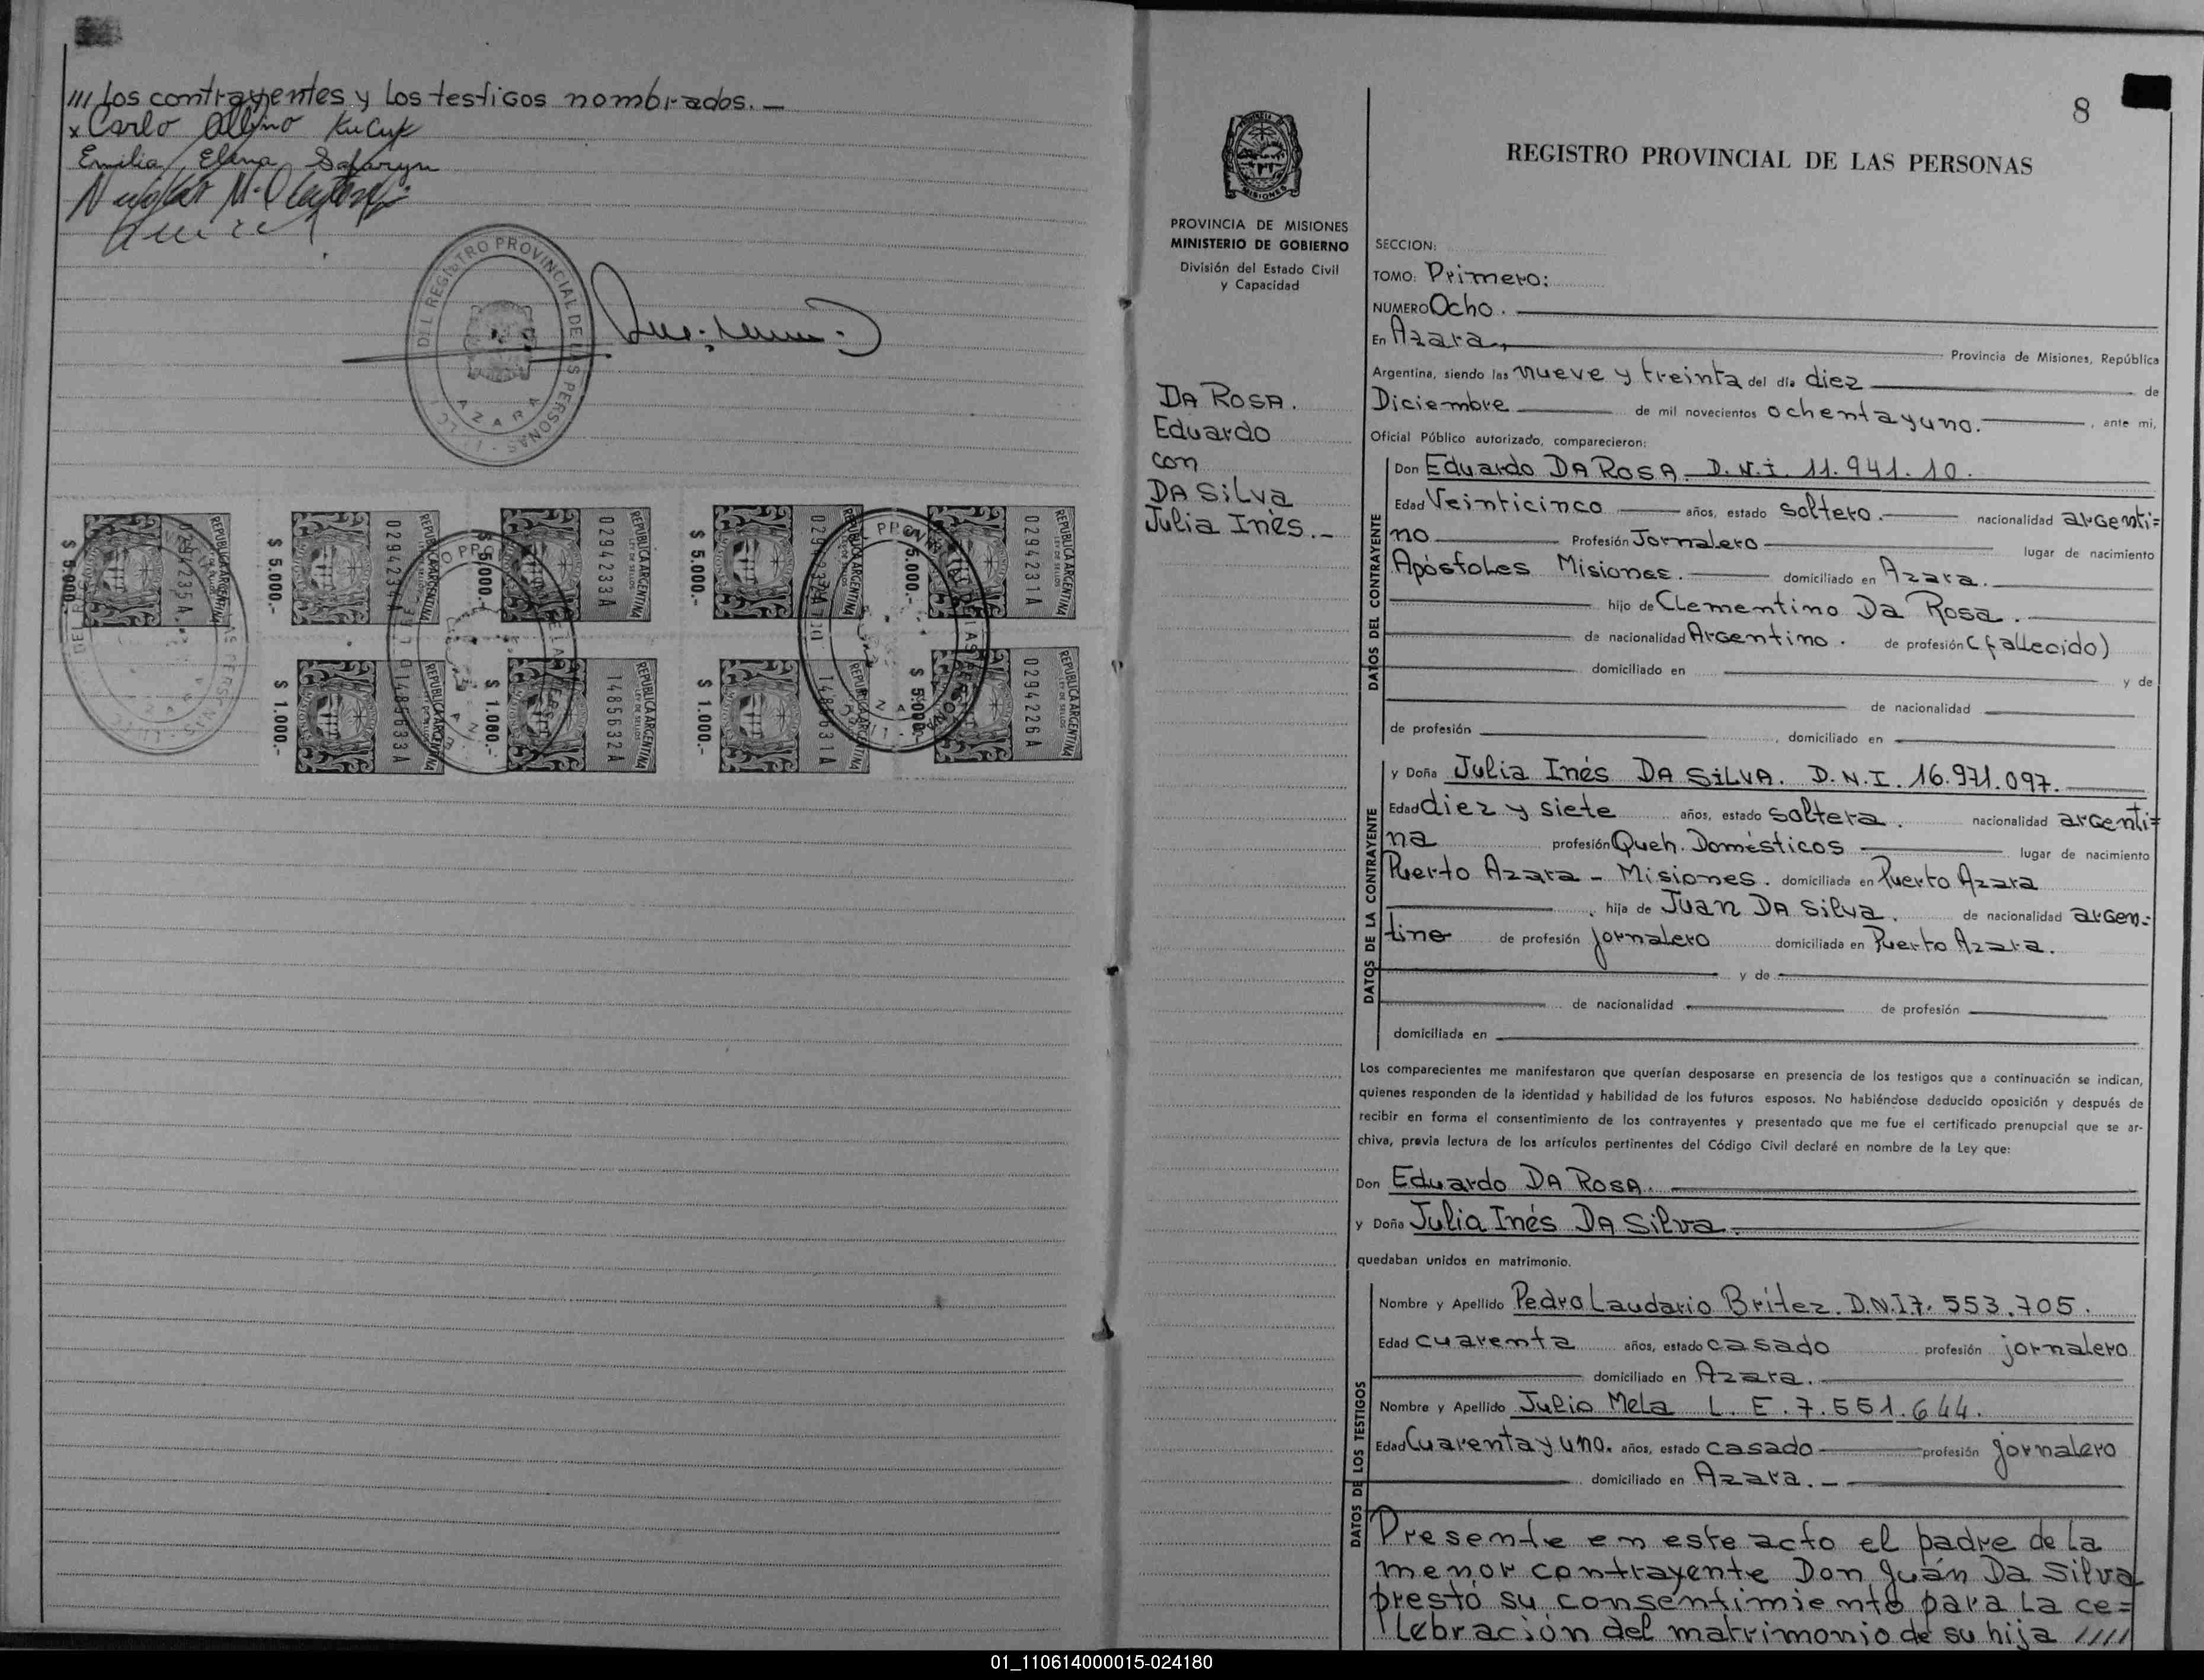 /// los contrayentes y los testigos nombrados. —
x Carlo Albino Kucuk
Emilia Elena Safaryn
DEL REGISTRO PROVINCIAL DE LAS PERSONAS
AZARA
REPUBLICA ARGENTINA
LEY DE SELLOS
$ 5.000.-
$ 5.000.-
0294233A
$ 5.000.-
$ 5.000.-
0294231A
$ 5.000.-
$ 1.000.-
1485633A
$ 1.000.-
1485632A
$ 1.000.-
1485631A
$ 5.000.-
0294226A
8
REGISTRO PROVINCIAL DE LAS PERSONAS
MISIONES
PROVINCIA DE MISIONES
MINISTERIO DE GOBIERNO
División del Estado Civil
y Capacidad
DA ROSA.
Eduardo
con
DA SiLva
Julia Inés. -
SECCION:
TOMO: Primero:
NUMERO Ocho.
En Azara, Provincia de Misiones, República
Argentina, siendo las nueve y treinta del día diez de
Diciembre de mil novecientos ochentayuno. , ante mi,
Oficial Público autorizado, comparecieron:
DATOS DEL CONTRAYENTE
Don Eduardo DA ROSA. D.N.I. 11.941.10.
Edad Veinticinco años, estado soltero. nacionalidad argenti=
no Profesión Jornalero lugar de nacimiento
Apóstoles Misiones. domiciliado en Azara.
hijo de Clementino Da Rosa.
de nacionalidad Argentino. de profesión (fallecido)
domiciliado en y de
de nacionalidad
de profesión , domiciliado en
DATOS DE LA CONTRAYENTE
y Doña Julia Inés DA SiLVA. D.N.I. 16.971.097.
Edad diez y siete años, estado soltera. nacionalidad argenti=
na profesión Queh. Domésticos lugar de nacimiento
Puerto Azara - Misiones. domiciliada en Puerto Azara
, hija de Juan DA Silva. de nacionalidad argen=
tino de profesión jornalero domiciliada en Puerto Azara.
y de
de nacionalidad de profesión
domiciliada en
Los comparecientes me manifestaron que querían desposarse en presencia de los testigos que a continuación se indican,
quienes responden de la identidad y habilidad de los futuros esposos. No habiéndose deducido oposición y después de
recibir en forma el consentimiento de los contrayentes y presentado que me fue el certificado prenupcial que se ar-
chiva, previa lectura de los artículos pertinentes del Código Civil declaré en nombre de la Ley que:
Don Eduardo DA ROSA.
y Doña Julia Inés DA Silva
quedaban unidos en matrimonio.
DATOS DE LOS TESTIGOS
Nombre y Apellido Pedro Laudario Brítez. D.N.I 7.553.705.
Edad cuarenta años, estado casado profesión jornalero
domiciliado en Azara.
Nombre y Apellido Julio Mela L.E. 7.551.644.
Edad Cuarenta y uno. años, estado casado profesión jornalero
domiciliado en Azara. -
Presente en este acto el padre de la
menor contrayente Don Juán Da Silva
prestó su consentimiento para la ce=
lebración del matrimonio de su hija ////
01_110614000015-024180